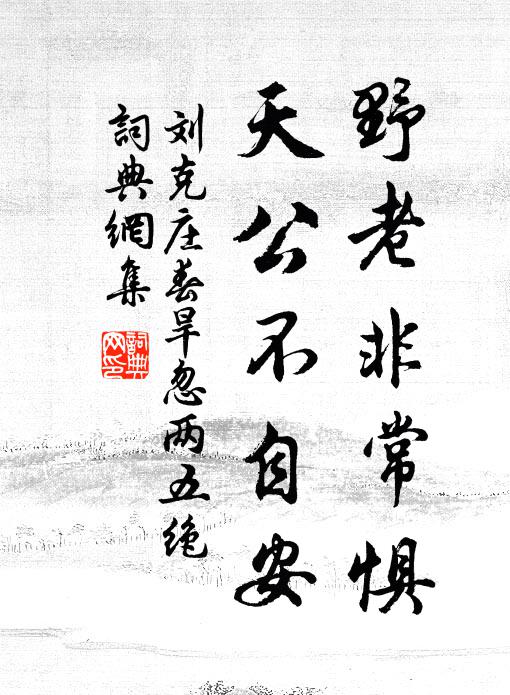 野老非常惧
天公不自安
刘克庄春旱忽两五绝
詞典網集
詞典网印